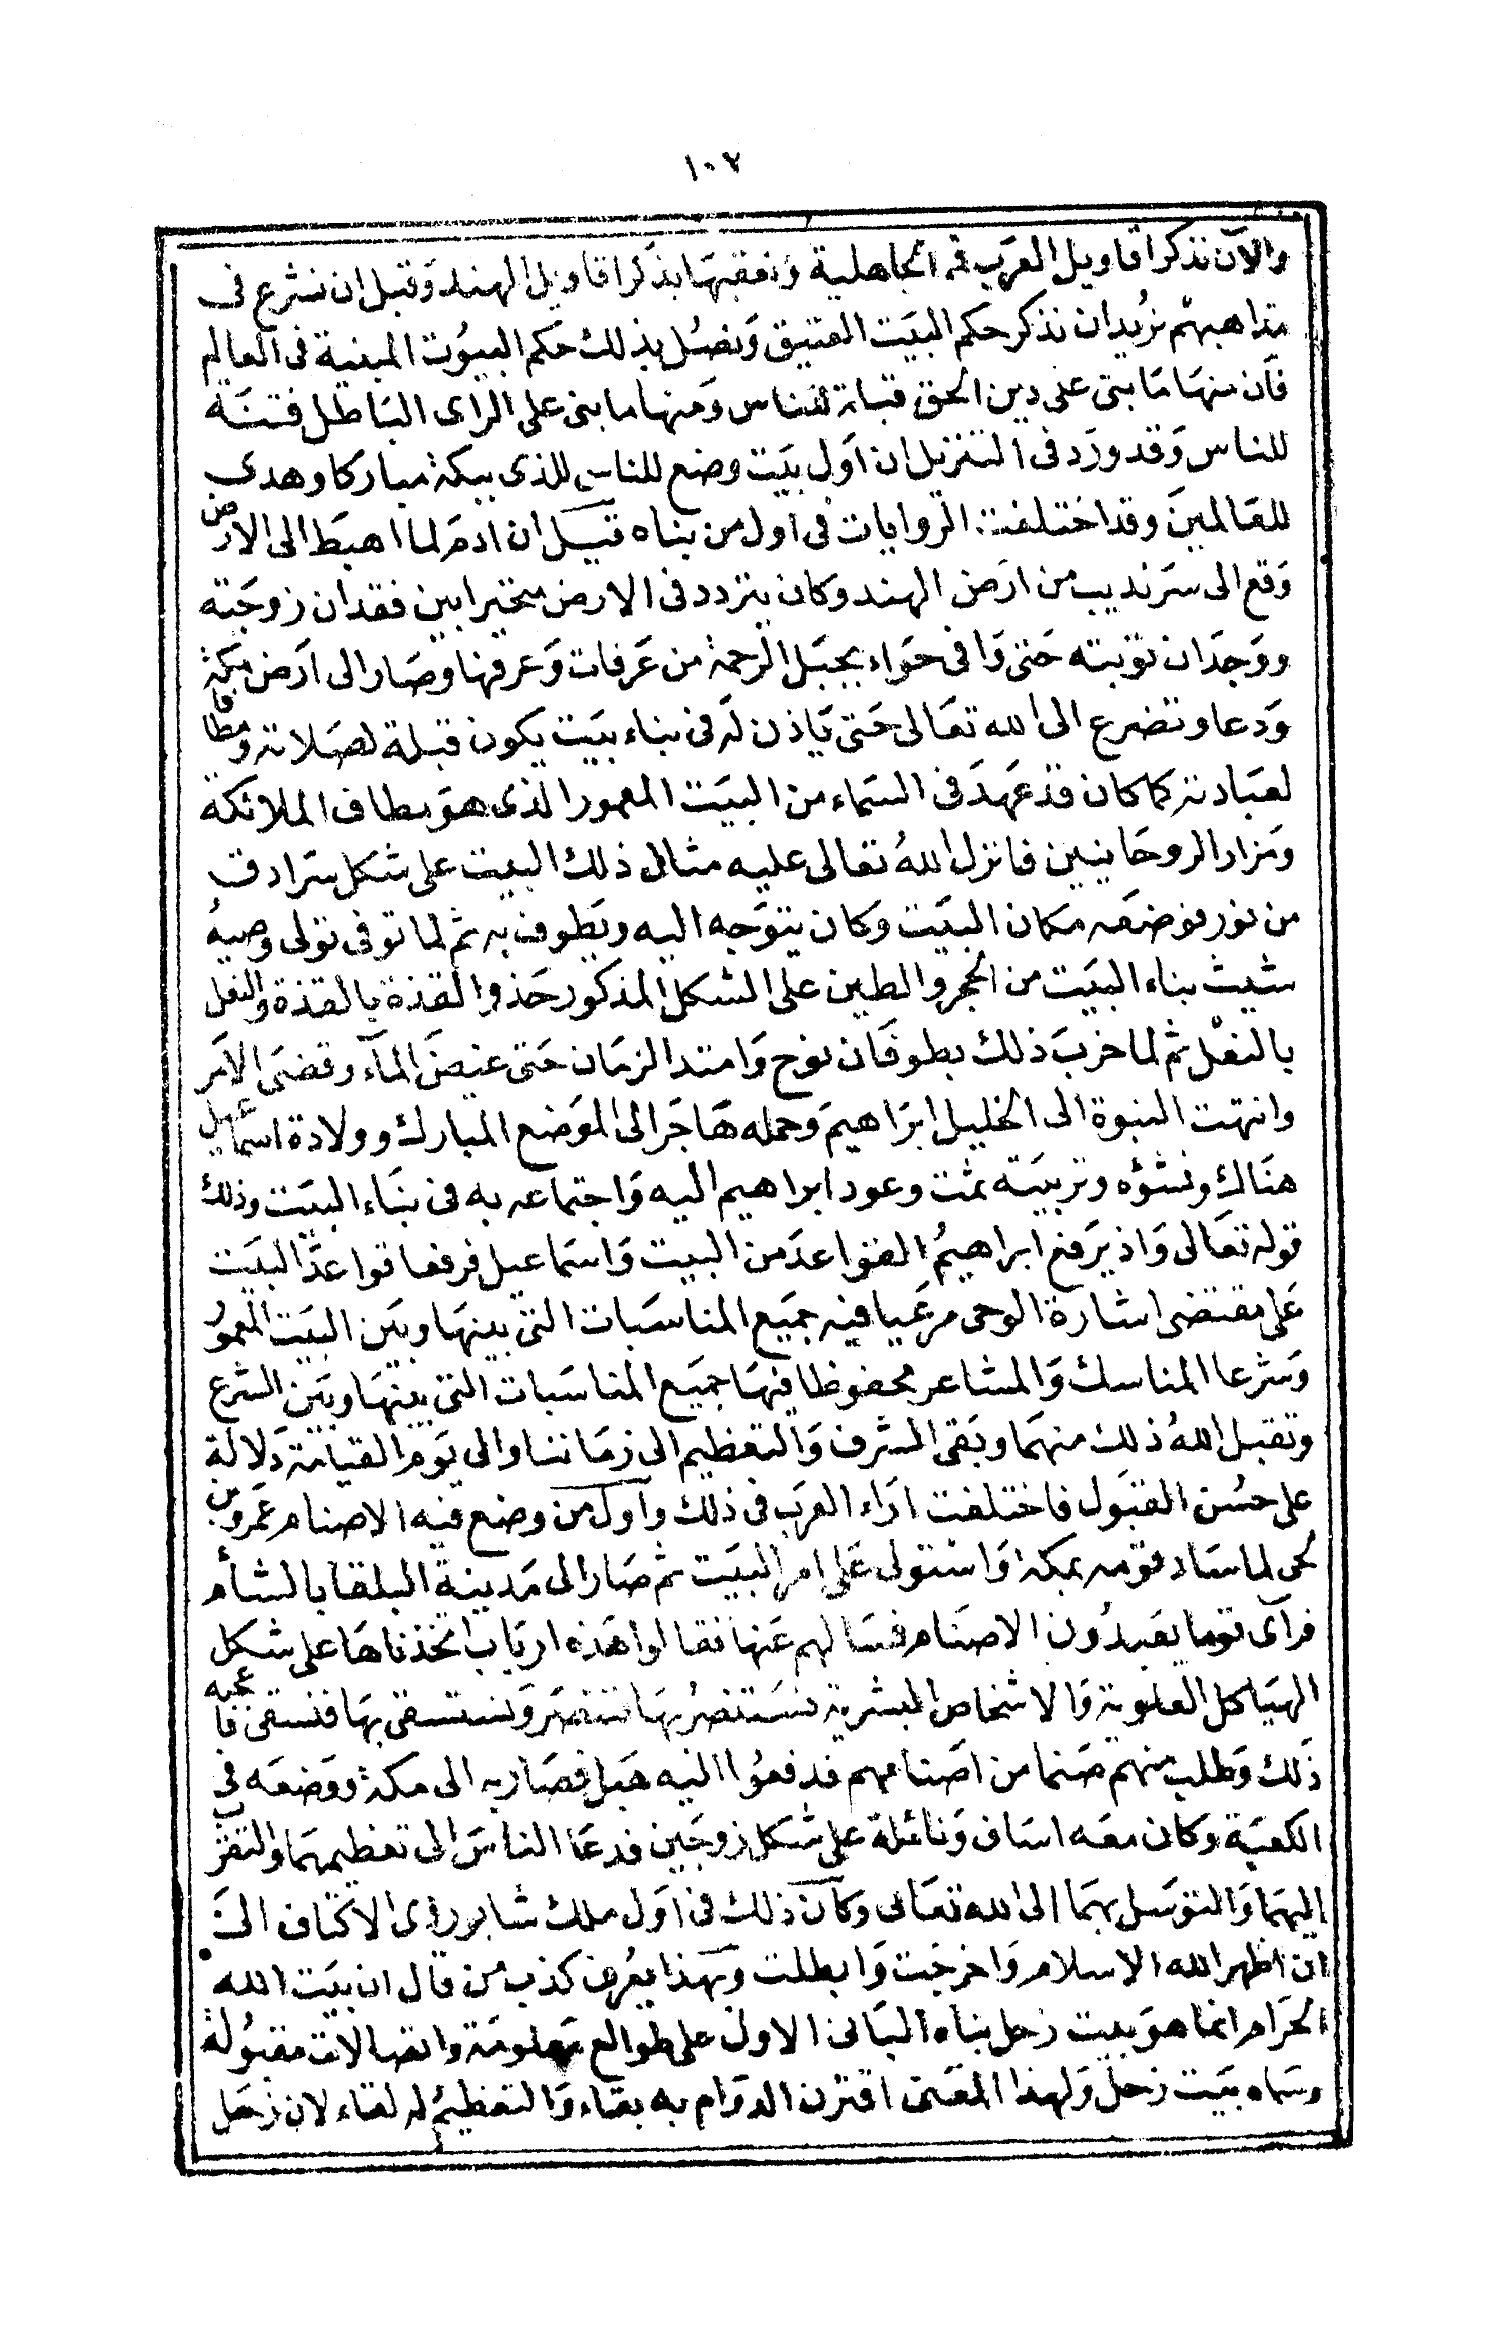 ١٠٧
والآن نذكر اقاويل العرب في الجاهلية ونعقبها بذكر اقاويل الهند وقبل ان نشرع فى
مذاهبهم نريد ان نذكر حكم البيت العتيق ونصل بذلك حكم البيوت المبنية فى العالم
فان منها ما بنى على دين الحق قبلة للناس ومنها ما بنى على الراى الباطل فتنة
للناس وقد ورد فى التنزيل ان اول بيت وضع للناس للذى ببكة مباركا وهدى
للعالمين وقد اختلفت الروايات فى اول من بناه قيل ان ادم لما اهبط الى الارض
وقع الى سرنديب من ارض الهند وكان يتردد فى الارض متحيرا بين فقدان زوجته
ووجدان توبته حتى وافى حواء بجبل الرحمة من عرفات وعرفها وصار الى ارض مكة
ودعا وتضرع الى الله تعالى حتى ياذن له فى بناء بيت يكون قبلة لصلاته ومطافا
لعبادته كما كان قد عهد فى السماء من البيت المعمور الذى هو مطاف الملائكة
ومزار الروحانيين فانزل الله تعالى عليه مثال ذلك البيت على شكل سرادق
من نور فوضعه مكان البيت وكان يتوجه اليه ويطوف به ثم لما توفى تولى وصيه
شيث بناء البيت من الحجر والطين على الشكل المذكور حذو القذة بالقذة والنعل
بالنعل ثم لما خرب ذلك بطوفان نوح وامتد الزمان حتى غيض المآء وقضى الامر
وانتهت النبوة الى الخليل ابراهيم وحمله هاجر الى الموضع المبارك وولادة اسماعيل
هناك ونشؤه وتربيته ثمت وعود ابراهيم اليه واجتماعه به فى بناء البيت وذلك
قوله تعالى واذ يرفع ابراهيم القواعد من البيت واسماعيل فرفعا قواعد البيت
على مقتضى اشارة الوحى مرعيا فيه جميع المناسبات التى بينها وبين البيت المعمور
وشرعا المناسك والمشاعر محفوظا فيها جميع المناسبات التى بينها وبين الشرع
وتقبل الله ذلك منهما وبقى الشرف والتعظيم الى زماننا والى يوم القيامة دلالة
على حسن القبول فاختلفت اراء العرب فى ذلك واول من وضع فيه الاصنام عمرو بن
لحى لما ساد قومه بمكة واستولى على امر البيت ثم صار الى مدينة البلقا بالشأم
فرآى قوما يعبدون الاصنام فسالهم عنها فقالوا هذه ارباب اتخذناها على شكل
الهياكل العلوية والاشخاص البشرية نستنصر بها فننصر ونستسقى بها فنسقى فاعجبه
ذلك وطلب منهم صنما من اصنامهم فدفعوا اليه هبل فصار به الى مكة ووضعه فى
الكعبة وكان معه اساف ونائلة على شكل زوجين فدعا الناس الى تعظيمهما والتقرب
اليهما والتوسل بهما الى الله تعالى وكان ذلك فى اول ملك شابور ذى الاكتاف الى
ان اظهر الله الاسلام واخرجت وابطلت وبهذا يعرف كذب من قال ان بيت الله
الحرام انما هو بيت زحل بناه البانى الاول على طوالع معلومة واتصالات مقبولة
وسماه بيت زحل ولهذا المعنى اقترن الدوام به بقاء والتعظيم له لقاء لان زحل